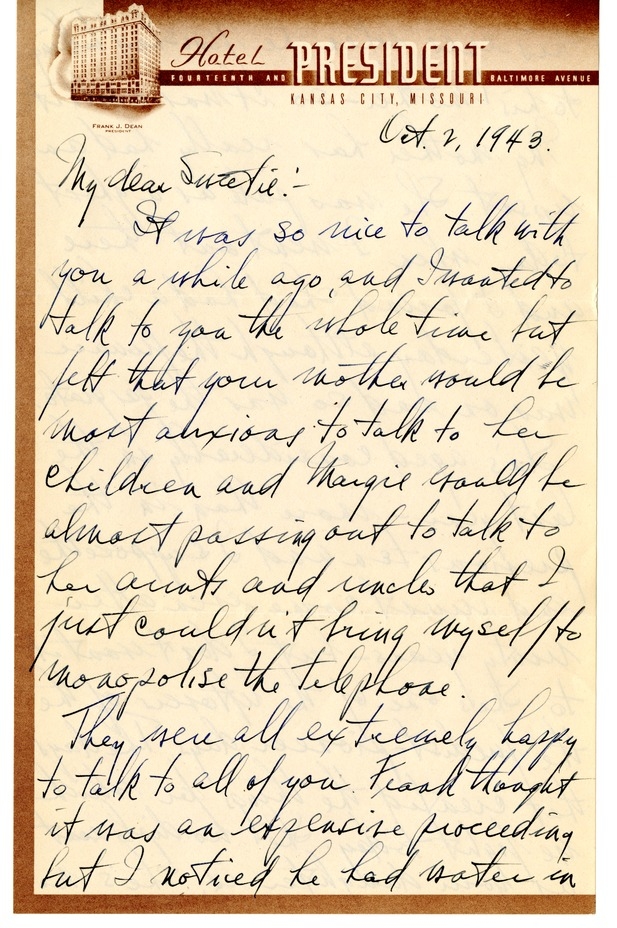 Hotel PRESIDENT
FOURTEENTH AND BALTIMORE AVENUE
KANSAS CITY, MISSOURI
FRANK J. DEAN
PRESIDENT
Oct. 2, 1943.
My dear Sweetie:-
It was so nice to talk with
you a while ago, and I wanted to
talk to you the whole time but
felt that your mother would be
most anxious to talk to her
children and Margie would be
almost passing out to talk to
her aunts and uncles that I
just couldn't bring myself to
monopolise the telephone.
They were all extremely happy
to talk to all of you. Frank thought
it was an expensive proceeding
but I noticed he had water in